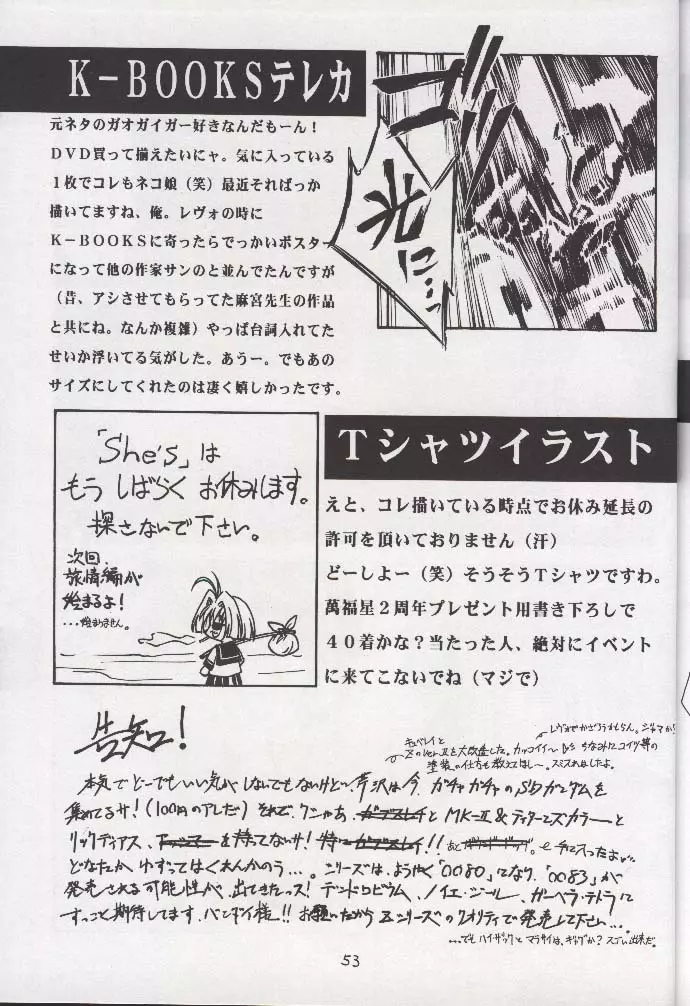 K-BOOKSテレカ
元ネタのガオガイガー好きなんだもーん！
DVD買って揃えたいにャ。気に入っている
１枚でコレもネコ娘（笑）最近そればっか
描いてますね、俺。レヴォの時に
K-BOOKSに寄ったらでっかいポスター
になって他の作家サンのと並んでたんですが
（昔、アシさせてもらってた麻宮先生の作品
と共にね。なんか複雑）やっぱ台詞入れてた
せいか浮いてる気がした。あうー。でもあの
サイズにしてくれたのは凄く嬉しかったです。
光に…っ
「She's」は
もう しばらく お休みします。
探さないで下さい。
次回、
旅情編が
始まるよ！
…始まりません。
Tシャツイラスト
えと、コレ描いている時点でお休み延長の
許可を頂いておりません（汗）
どーしよー（笑）そうそうTシャツですわ。
萬福星２周年プレゼント用書き下ろしで
４０着かな？当たった人、絶対にイベント
に来てこないでね（マジで）
告知！
キュベレイと
塗装の仕方も教えてほし〜。スミスおはしたよ。
本気でどーでもいい気がしないでもないけど〜、芹沢は今、ガチャガチャのSDガンダムを
集めてるサ！（100円のアレだ）それで、
MK-Ⅱ＆ティターンズカラーと
リックディアス、
を持ってないサ！
どなたか ゆずってはくれんかのう…。シリーズは、ようやく「0080」になり、「0083」が
発売される可能性が、出てきたっス！デンドロビウム、ノイエ・ジール、ガーベラ・テトラに
すっごく期待してます、バンダイ様！！お願いだから Zシリーズのクオリティで発売して下さい…。
…でもハイザックとマラサイは、ギャグか？スゴい出来だ。
53